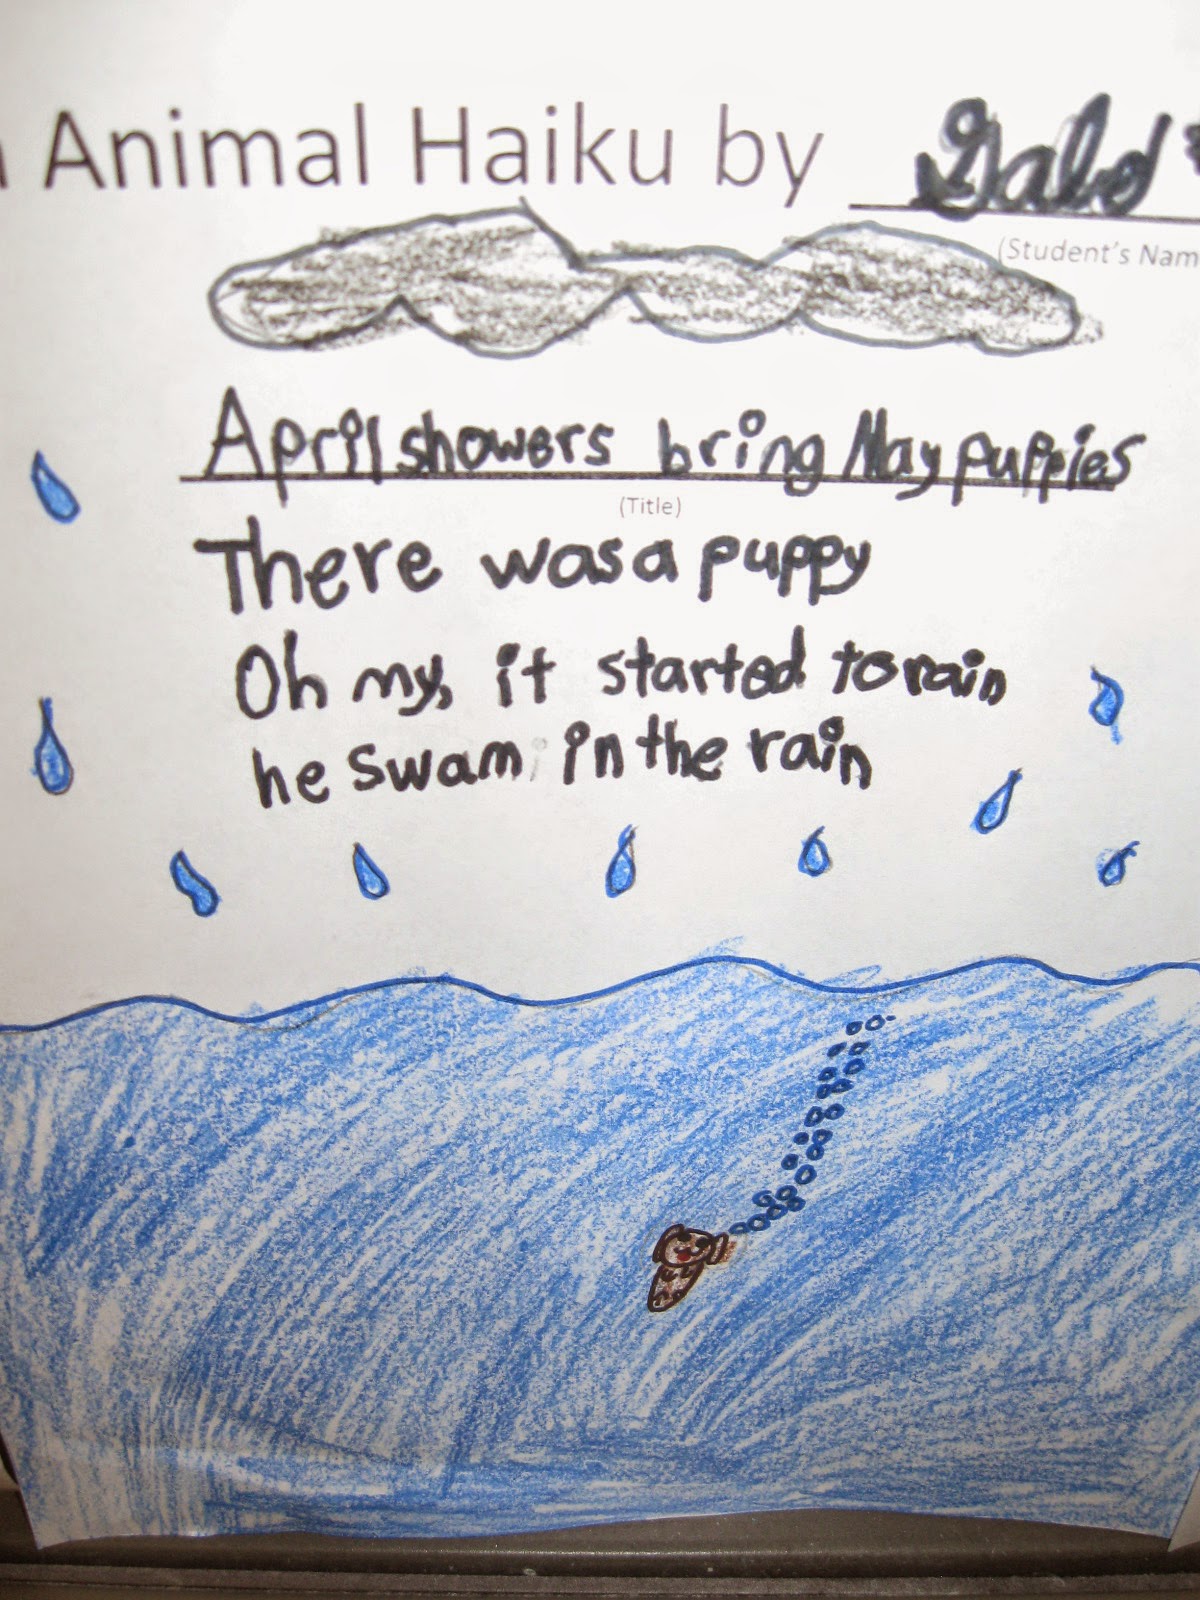 Animal Haiku by Gabe
(Student's Nam
April showers bring May puppies
(Title)
There was a puppy
Oh my, it started to rain
he swam in the rain